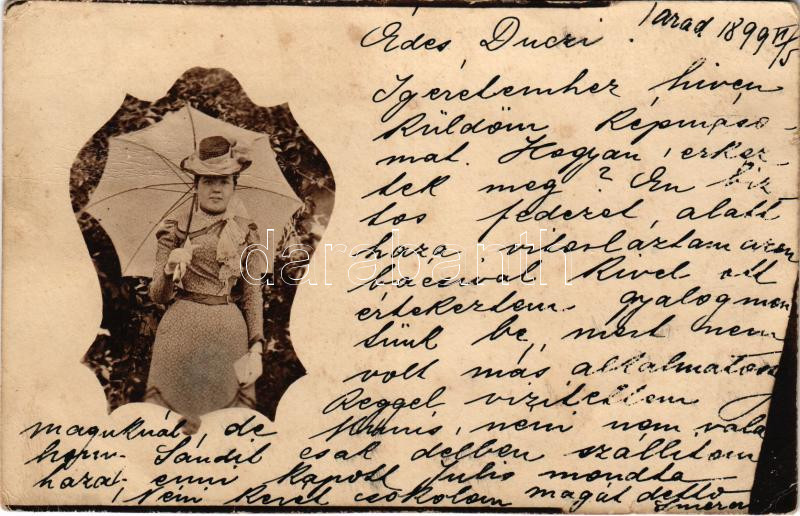 Tarad 1899 VI/5
Édes Duczi!
Igéretemhez hiven
küldöm képmáso-
mat. Hogyan érkez-
tek meg? Én biz
tos fedezet alatt
haza vitorláztam azon
baczival kivel ott
értekeztem gyalog men
tünk be, mert nem
volt más alkalmatos
Reggel viziteltem
maguknál, de nem
horn- Sándit csak delben szállitom
haza- enni kapott Julis mondta
Néni Kezét csókolom magát detto
darabanth